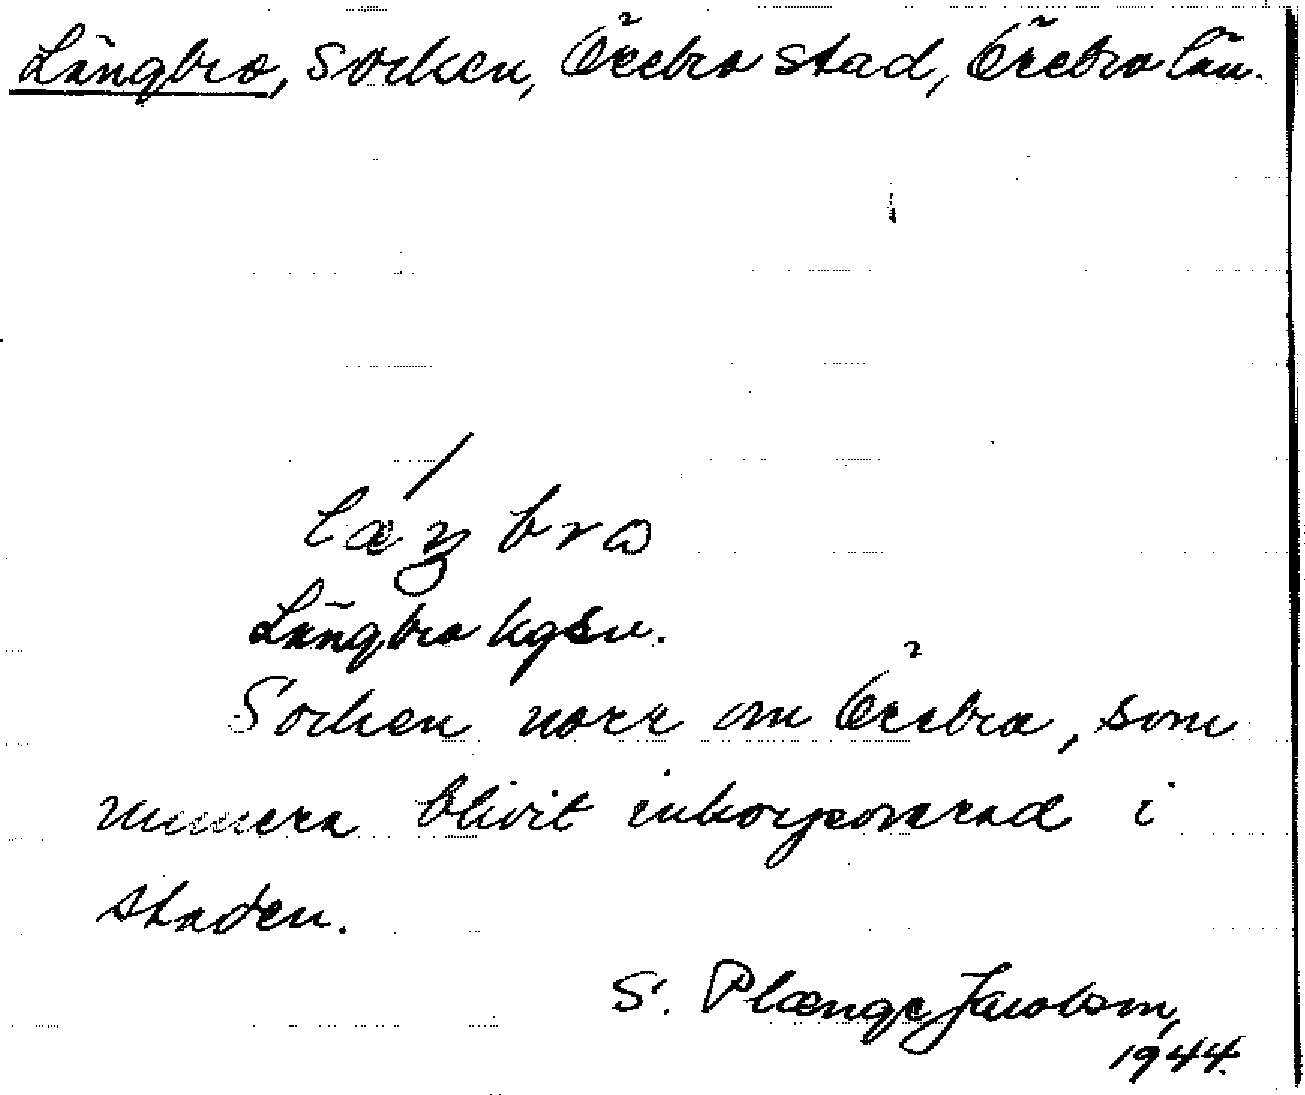 Längbro, socken, Örebro stad, Örebro län.
læŋbro
Längbro kgsv.
Socken norr om Örebro, som
numera blivit inkorporerad i
staden.
S. Plænge Jacobson,
1944.